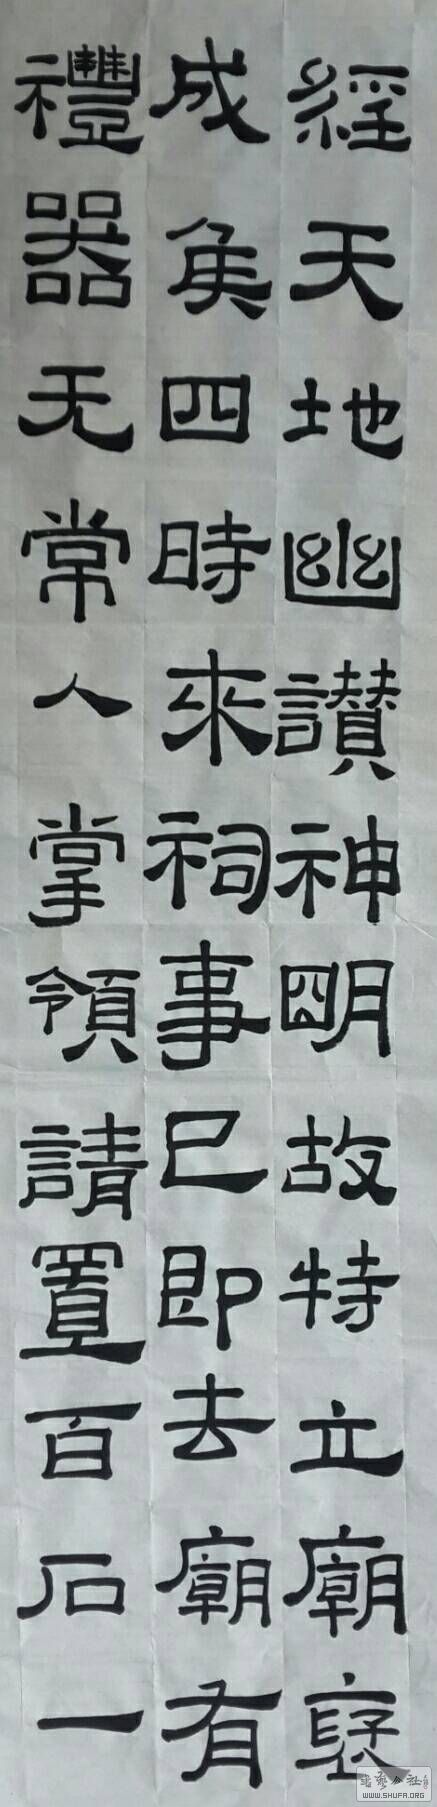 經天地幽讃神明故特立廟褒
成侯四時來祠事已即去廟有
禮器无常人掌領請置百石一
WWW.SHUFA.ORG